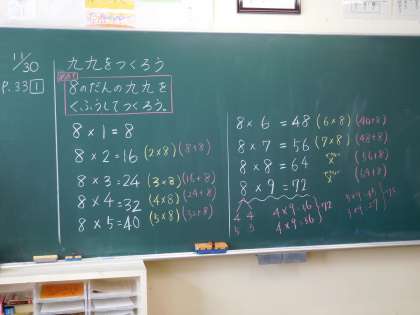 11/30
九九をつくろう
P.33 1
めあて
8のだんの九九を
くふうしてつくろう。
8×1=8
8×2=16 (2×8) (8+8)
8×3=24 (3×8) (16+8)
8×4=32 (4×8) (24+8)
8×5=40 (5×8) (32+8)
8×6=48 (6×8) (40+8)
8×7=56 (7×8) (48+8)
8×8=64 (56+8)
8×9=72 (64+8)
4 4
4×9=36
4×9=36
72